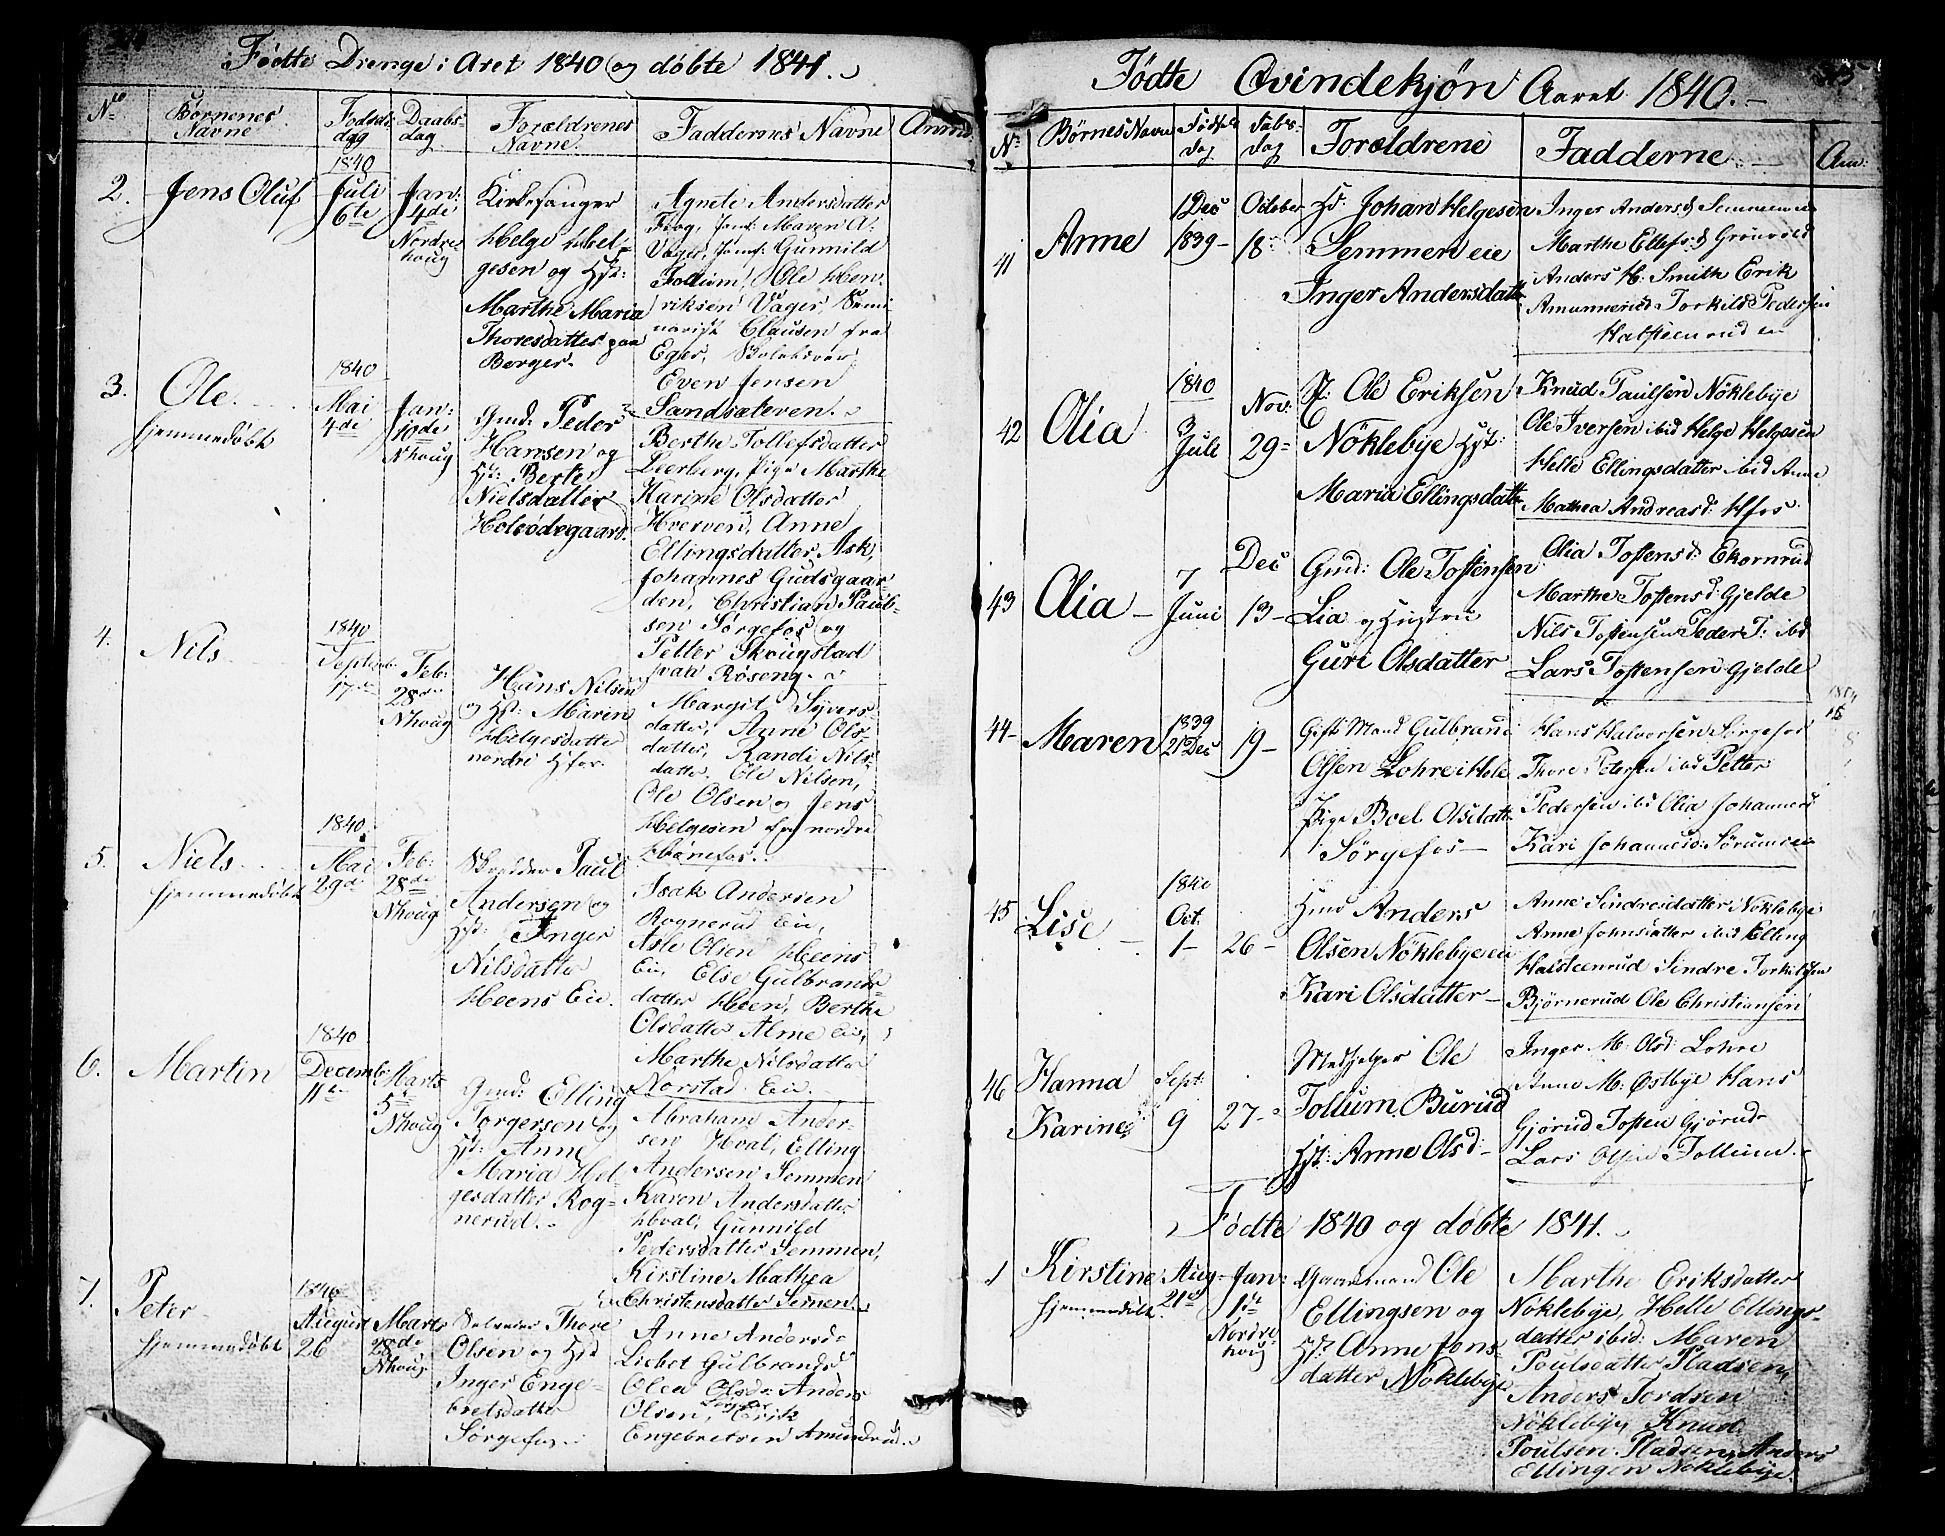 Fødte Drenge i Aret 1840 og døbte 1841.
No Børnenes Navne Fødsels dag Daabs- dag Forældrenes Navne. Faddernes Navne Anm
2. Jens Oluf
1840 Juli 6te
Jan: 4de Nordre houg
Kirkesanger
Helge Hel-
gesen og Hst:
Marthe Maria
Thoresdatter paa
Berger.
Agnete Andersdatter
Flog, Jomf: Maren A.
Vager, Jomf: Gunnild
Follum, Ole Hen-
riksen Vager, Semi-
narist Clausen fra
Eger,
Even Jensen
Sandsæteren.
3. Ole.
hjemmedøbt
1840 Mai 4de
Jan: 10de Nhoug
Gmd. Peder
Hansen og
Hst: Berte
Nielsdatter
Holsødegaard.
Berthe Tollefsdatter
Lierberg, Pige Marthe
Karine Olsdatter
Hverven, Anne
Ellingsdatter Ask,
Johannes Gudsgaar-
den, Christian Paul-
sen Sørgefos og
Petter Skougstad
paa Røseng.
4. Nils
1840 Septemb: 17de
Feb: 28de Nhoug
Hans Nilsen
og Hst: Maren
Helgesdatter
nordre Hfos.
Margit Syvers-
datter, Anne Ols-
datter, Randi Nils-
datter, Ole Nilsen,
Ole Olsen og Jens
Helgesen fra nordre
Hønefos.
5. Niels
hjemmedøbt
1840. Mai 29de
Feb: 28de Nhoug
Skrædder Paul
Andersen og
Hst: Inger
Nilsdatter
Heens Eie.
Isak Andersen
Rognerud Eie,
Asle Olsen Heens
Eie, Else Gulbrands-
datter Heen, Berthe
Olsdatter Alme Eie,
Marthe Nilsdatter
Rørstad Eie.
6. Martin
1840 Decemb: 11te
Marts 5te Nhoug
Gmd: Elling
Torgersen og
Hst: Anne
Maria Hel-
gesdatter Rog-
nerud.
Abraham Ander-
sen Hval, Elling
Andersen Semmen
Karen Andersdatter
Hval, Gunnild
Pedersdatter Semmen,
Kirstine Mathea
Christensdatter Semen.
7. Peter
hjemmedøbt
1840 August 26
Marts 28de Nhoug
Selveier Thore
Olsen og Hst
Inger Enge-
bretsdatter
Sørgefos.
Anne Andersd:
Lisbet Gulbrandsd
Olea Olsd: Anders
Olsen, Erik
Engebretsen Amundrud.
Fødte Qvindekjøn Aaret 1840.
No Børnes Navne Fødsels dag Daabs- dag Forældrene Fadderne Anm:
41 Anne
1 Dec 1839
October 18
Johan Helgesen
Semmen eie
Inger Andersdatter
Inger Andersd Semmen eie
Marthe Ellefsd Grønvold
Anders H. Smith Erik
Amunnerud Torkild Pedersen
Halsteenrud eie
42 Olia
1840 3 Jule
Nov: 29
Ole Eriksen
Nøklebye Hst:
Maria Ellingsdatter
Knud Paulsen Nøklebye
Ole Iversen ibid Helge Helgesen
Helle Ellingsdatter ibid Anne
Mathea Andreasd: Hfos
43 Olia
7 Juni
Dec 13
Gmd: Ole Tostensen
Lia og Hustru
Guri Olsdatter
Olia Tostensd: Ekornrud
Marthe Tostensd: Gjelde
Nils Tostensen Peder T: ibd
Lars Tostensen Gjelde
44 Maren
1839 21 Dec
19
Gift Mand Gulbrand
Olsen Lohre i Hole
Pige Boel Olsdatter
Sørgefos
Hans Halvorsen Sørgefos
Thore Petersen ibd Petter
Pedersen ibd Olia Johannesd
Kari Johannesd: Sørumeie
45 Lise
1840 Oct. 1
26
Hmd Anders
Olsen Nøklebyeeie
Kari Olsdatter
Anne Sindresdatter Nøklebye
Anne Johnsdatter ibid Elling
Halsteenrud Sindre Torkildsen
Bjørnerud Ole Christiansen
46 Hanna
Karine
Sept: 9
27
Medhjelper Ole
Follum Burud
Hst: Anne Olsd
Inger M: Olsd: Lohre
Anne M: Østbye Hans
Gjørud Tosten Gjørud
Lars Olsen Follum
Fødte 1840 og døbte 1841.
1 Kirstine
hjemmedøbt
Aug. 21de
Jan: 1ste Nordre houg
Gaardmand Ole
Ellingsen og
Hst Anne Jons-
datter Nøklebye
Marthe Eriksdatter
Nøklebye, Helle Ellings-
datter ibid: Maren
Poulsdatter Pladsen,
Anders Tordsen
Nøklebye, Knud
Poulsen Pladsen, Anders
Ellingsen Nøklebye.